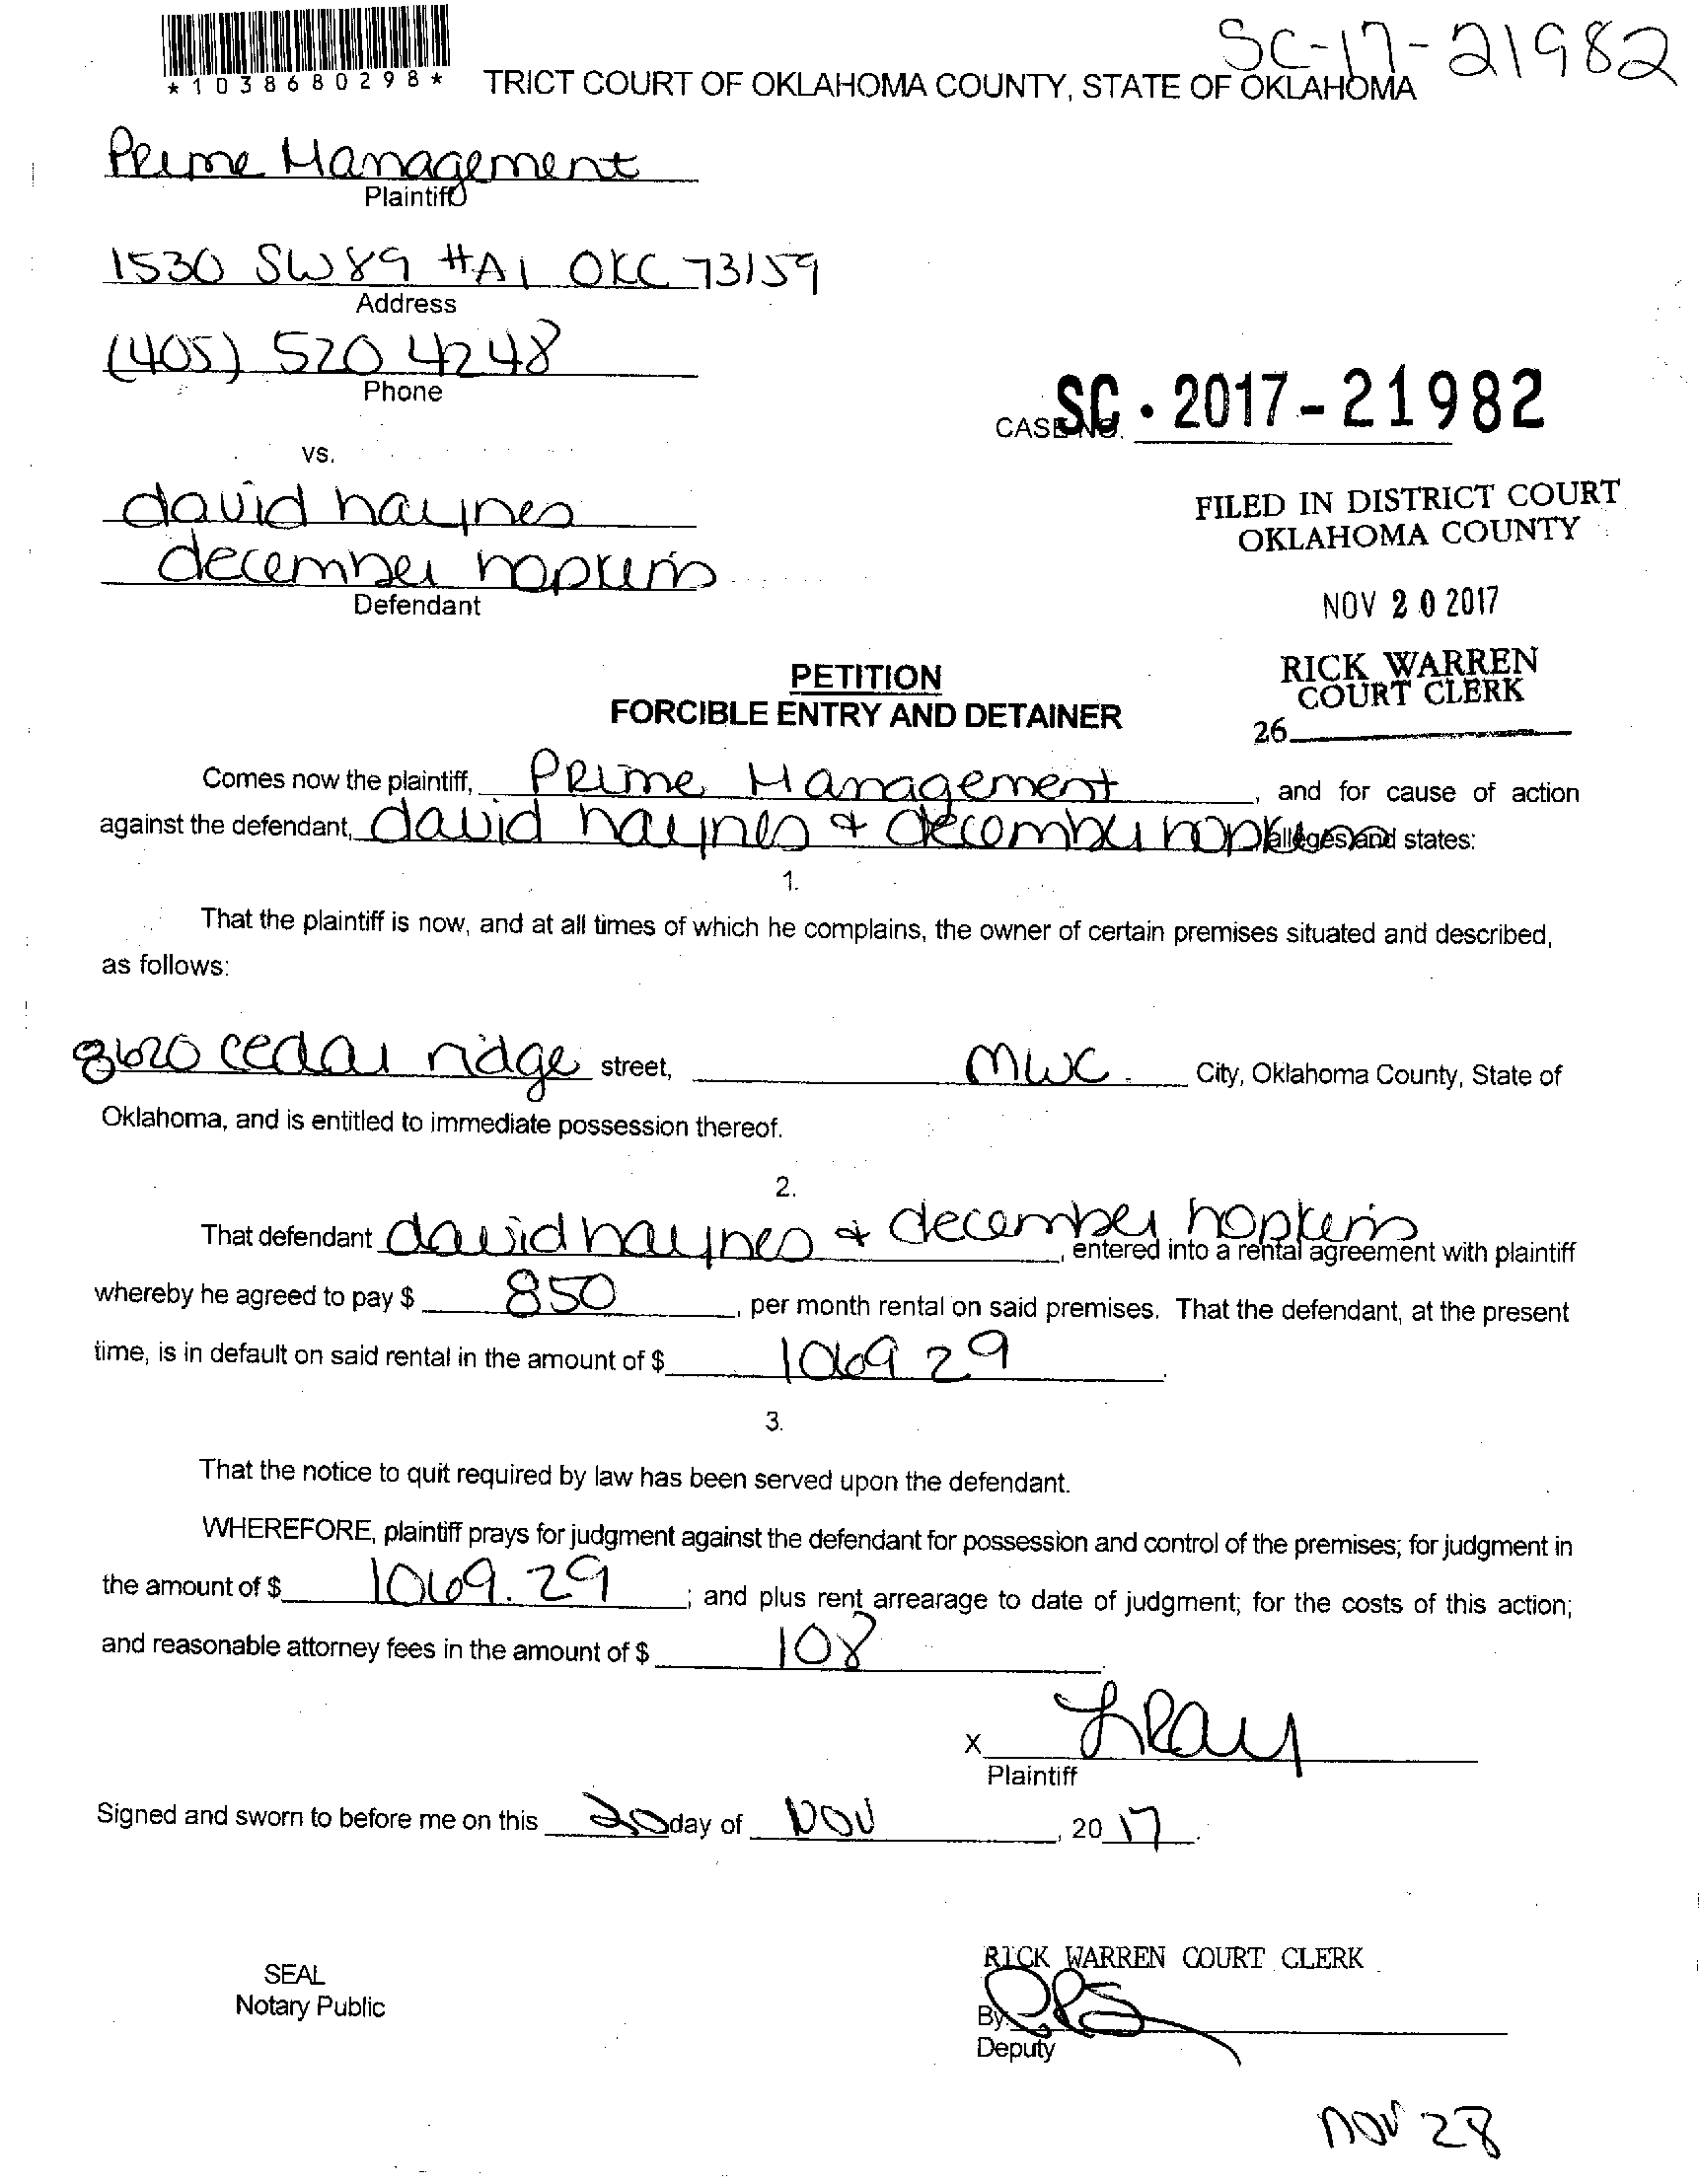 SC-17-21982
*1038680298*
TRICT COURT OF OKLAHOMA COUNTY, STATE OF OKLAHOMA
Prime Management
Plaintiff
1530 SW 89 #A1 OKC 73159
Address
(405) 520 4248
Phone
CASE NO. SC - 2017 - 21982
vs.
david haynes
december hopkins
Defendant
FILED IN DISTRICT COURT
OKLAHOMA COUNTY
NOV 20 2017
RICK WARREN
COURT CLERK
26
PETITION
FORCIBLE ENTRY AND DETAINER
Comes now the plaintiff, Prime Management, and for cause of action
against the defendant, david haynes & december hopkins alleges and states:
1.
That the plaintiff is now, and at all times of which he complains, the owner of certain premises situated and described,
as follows:
8620 cedar ridge street, MWC. City, Oklahoma County, State of
Oklahoma, and is entitled to immediate possession thereof.
2.
That defendant david haynes & december hopkins, entered into a rental agreement with plaintiff
whereby he agreed to pay $ 850, per month rental on said premises. That the defendant, at the present
time, is in default on said rental in the amount of $ 1069 29.
3.
That the notice to quit required by law has been served upon the defendant.
WHEREFORE, plaintiff prays for judgment against the defendant for possession and control of the premises; for judgment in
the amount of $ 1069.29; and plus rent arrearage to date of judgment; for the costs of this action;
and reasonable attorney fees in the amount of $ 108.
X
Plaintiff
Signed and sworn to before me on this 20 day of NOV, 20 17.
SEAL
Notary Public
RICK WARREN COURT CLERK
By:
Deputy
NOV 28